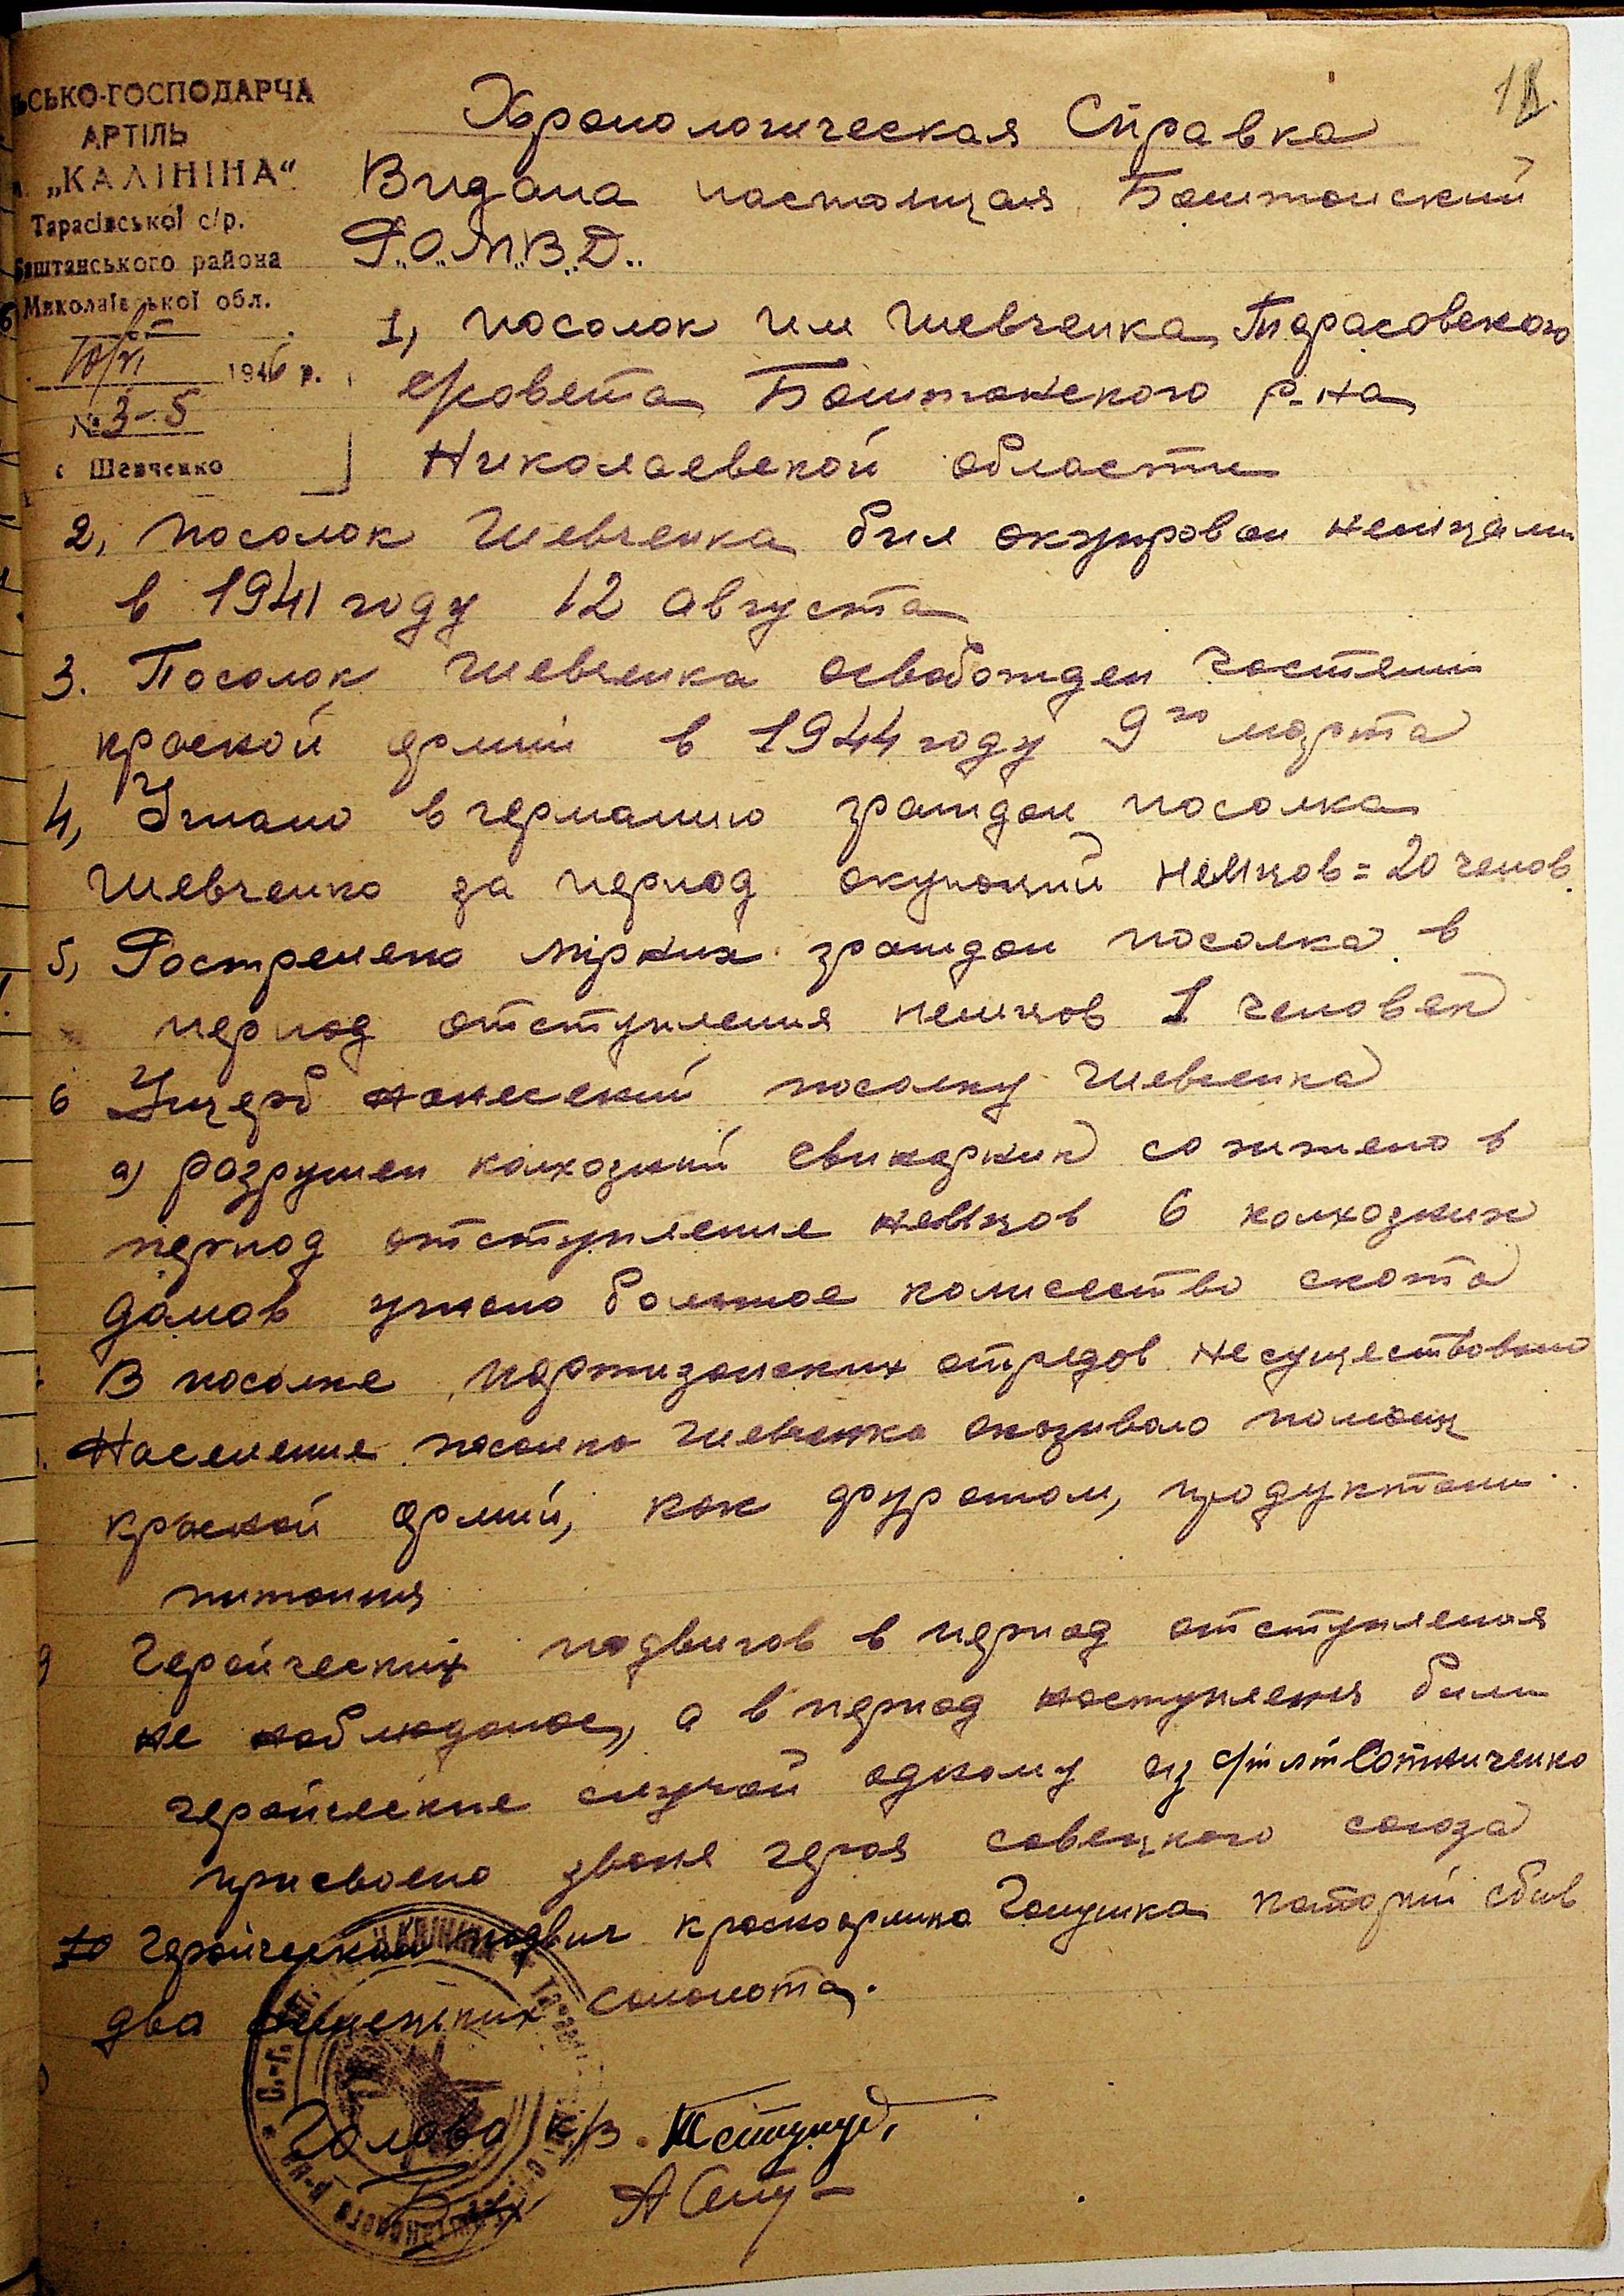 18.
ЬСЬКО-ГОСПОДАРЧА
АРТІЛЬ
„КАЛІНІНА“
Тарасівської с/р.
Баштанського района
Миколаївської обл.
10/VI 1946 р.
№ 3-5
с Шевченко
Хронологическая Справка
Видана настоящая Баштанский
Р.О.М.В.Д..
1, посолок им Шевченка Тарасовского
с/совета Баштанского р-на
Николаевской области
2, посолок Шевченка бил окупирован немцами
в 1941 году 12 августа
3. Посолок Шевченка освабожден частями
красной армии в 1944 году 9го марта
4, Угнано в германию граждан посолка
Шевченко за период окупоции немцов = 20 челов.
5, Растрелено мірних граждан посолка в
период отступления немцов 1 человек
6 Ущерб нанесений посолку Шевченка
а) разрушен колхозний свинарник сожжено в
период отступление немцов 6 колхозних
домов угнано большое количество скота
В посолке партизанских отредов не существовало
Население посолка Шевченка оказивало помощ
красной армии, как фуражом, продуктами
питания
9 Геройческих подвигов в период отступления
не наблюдалось, а в период наступления били
геройческие случаи одному из с/т л-т Сотниченко
присвоено звание героя совецкого союза
10 Геройческий подвиг красноармица Галушка каторий сбив
два немецких самольота.
Голова к/з